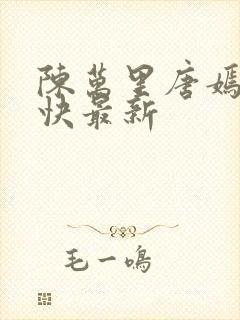 陳萬里唐嫣
快最新
毛一鳴